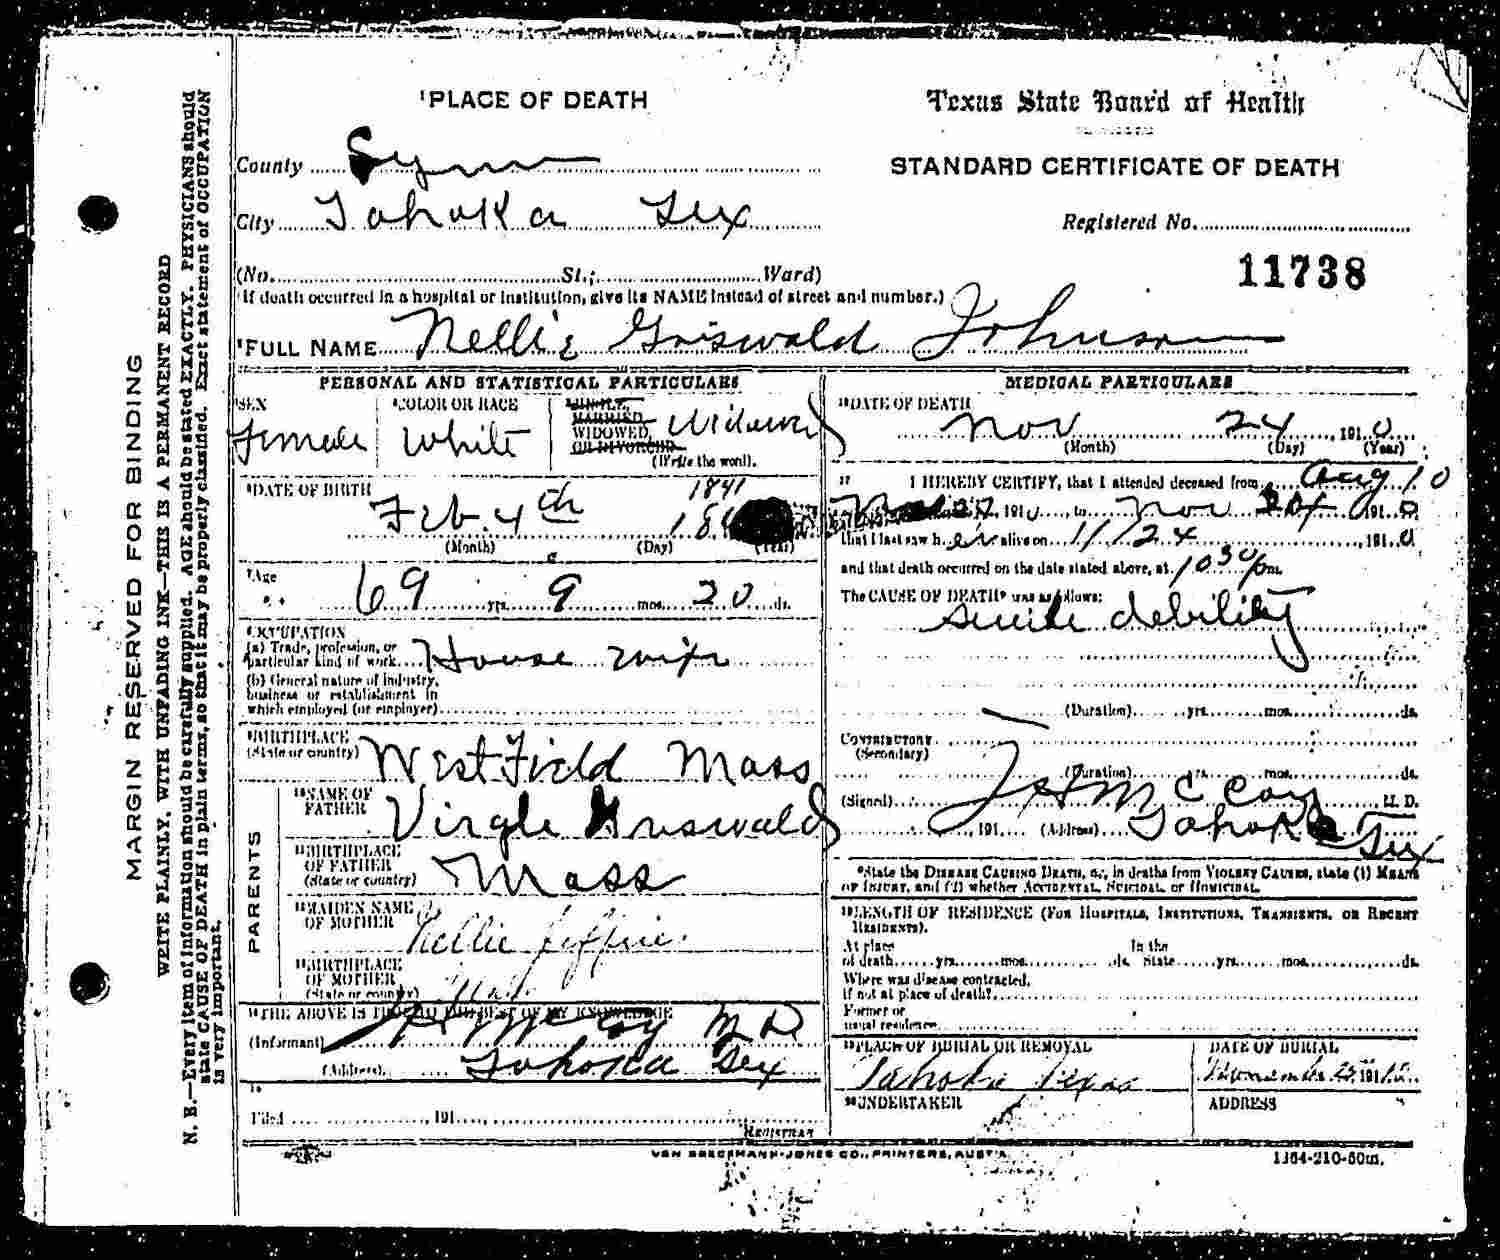 PLACE OF DEATH
Texas State Board of Health
County Lynn
STANDARD CERTIFICATE OF DEATH
City Tahoka Tex
Registered No.
(No. St.; Ward)
11738
(If death occurred in a hospital or institution, give its NAME instead of street and number.)
FULL NAME Nellie Griswald Johnson
PERSONAL AND STATISTICAL PARTICULARS
SEX
Female
COLOR OR RACE
White
SINGLE,
MARRIED
WIDOWED,
OR DIVORCED
(Write the word).
Widowed
DATE OF BIRTH
1841
Feb. 4th
(Month) (Day) (Year)
Age
69 yrs. 9 mos. 20 ds.
OCCUPATION
(a) Trade, profession, or
particular kind of work House wife
(b) General nature of industry,
business or establishment in
which employed (or employer)
BIRTHPLACE
(State or country) Westfield Mass
PARENTS
NAME OF
FATHER Virgle Griswald
BIRTHPLACE
OF FATHER
(State or country) Mass
MAIDEN NAME
OF MOTHER Nellie
BIRTHPLACE
OF MOTHER
(State or country)
THE ABOVE IS TRUE TO THE BEST OF MY KNOWLEDGE
(Informant) McCoy MD
(Address) Tahoka Tex
Filed , 191
REGISTRAR
MEDICAL PARTICULARS
DATE OF DEATH
Nov 24, 1910
(Month) (Day) (Year)
I HEREBY CERTIFY, that I attended deceased from Aug 10
191 to Nov 24 1910
that I last saw her alive on 11/24, 1910
and that death occurred on the date stated above, at 10 30/pm.
The CAUSE OF DEATH* was as follows:
Senile debility
(Duration) yrs. mos. ds.
CONTRIBUTORY
(Secondary)
(Duration) yrs. mos. ds.
(Signed) McCoy M. D.
, 191 (Address) Tahoka Tex
*State the DISEASE CAUSING DEATH, or, in deaths from VIOLENT CAUSES, state (1) MEANS
OF INJURY, and (2) whether ACCIDENTAL, SUICIDAL, or HOMICIDAL.
LENGTH OF RESIDENCE (FOR HOSPITALS, INSTITUTIONS, TRANSIENTS, OR RECENT
RESIDENTS).
At place In the
of death yrs. mos. ds. State yrs. mos. ds.
Where was disease contracted,
If not at place of death?
Former or
usual residence
PLACE OF BURIAL OR REMOVAL
Tahoka Texas
DATE OF BURIAL
November 25 1910
UNDERTAKER
ADDRESS
VON BOECKMANN-JONES CO., PRINTERS, AUSTIN
1164-210-50m.
MARGIN RESERVED FOR BINDING
WRITE PLAINLY, WITH UNFADING INK—THIS IS A PERMANENT RECORD
N. B.—Every item of information should be carefully supplied. AGE should be stated EXACTLY. PHYSICIANS should
state CAUSE OF DEATH in plain terms, so that it may be properly classified. Exact statement of OCCUPATION
is very important.